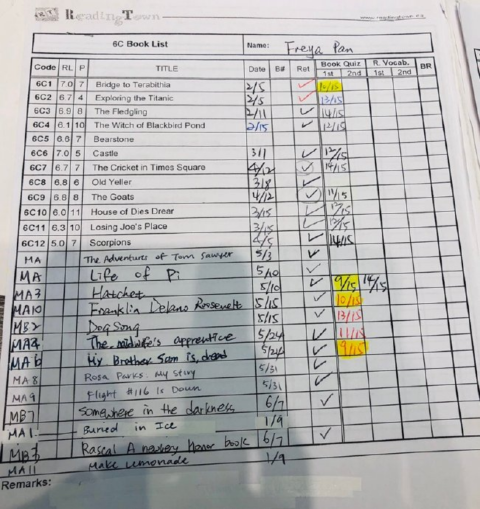 ReadingTown
6C Book List Name: Freya Pan
Code RL P TITLE Date B# Ret Book Quiz R. Vocab. BR
1st 2nd 1st 2nd
6C1 7.0 7 Bridge to Terabithia 2/5
6C2 6.7 4 Exploring the Titanic 2/5 13/15
6C3 6.9 8 The Fledgling 2/11 14/15
6C4 6.1 10 The Witch of Blackbird Pond 2/15 12/15
6C5 6.6 7 Bearstone
6C6 7.0 5 Castle 3/1 12/15
6C7 6.7 7 The Cricket in Times Square 4/12 14/15
6C8 6.8 6 Old Yeller 3/8
6C9 6.8 8 The Goats 4/12 11/15
6C10 6.0 11 House of Dies Drear 3/15
6C11 6.3 10 Losing Joe's Place 3/15
6C12 5.0 7 Scorpions 4/5 14/15
MA The Adventures of Tom Sawyer 5/3
MA Life of Pi 5/10
MA3 Hatchet 5/10 9/15 14/15
MA10 Franklin Delano Roosevelt 5/15 10/15
MB2 Dog Song 5/15 13/15
MA4 The midwife's apprentice 5/24 11/15
MA6 My Brother Sam is dead 5/24 9/15
MA8 Rosa Parks My Story 5/31
MA9 Flight #116 Is Down 5/31
MB7 Somewhere in the darkness 6/7
MA1 Buried in Ice 1/9
MB3 Rascal A newbery Honor book 6/7
MA11 Make Lemonade 1/9
Remarks: